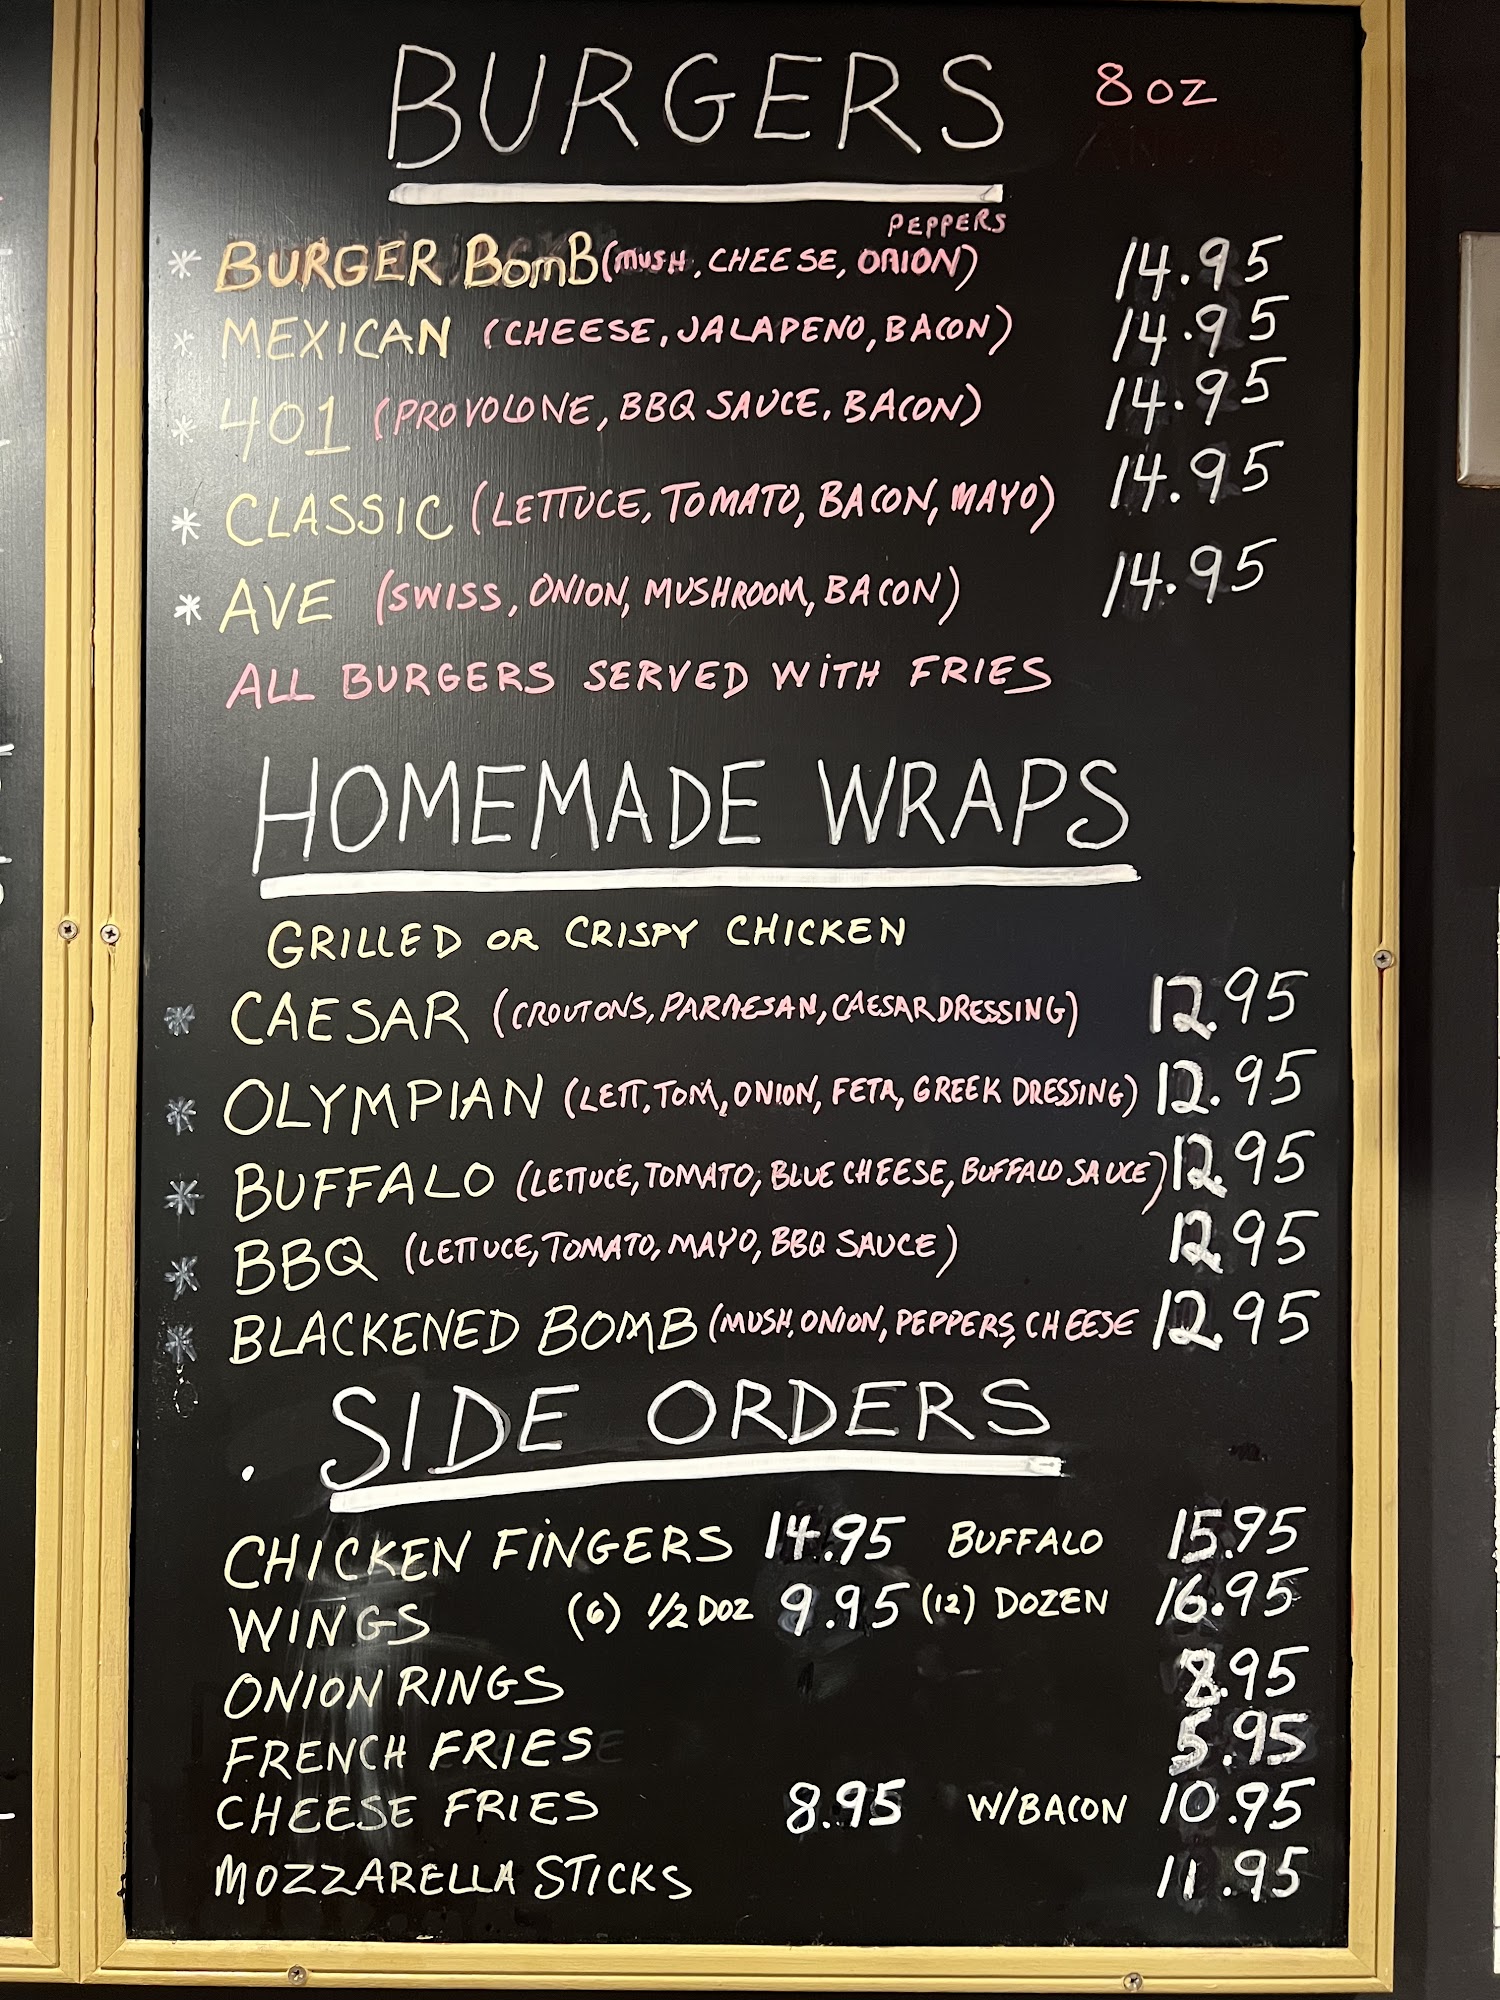 BURGERS 8 OZ
PEPPERS
* BURGER BOMB (MUSH, CHEESE, ONION) 14.95
* MEXICAN (CHEESE, JALAPENO, BACON) 14.95
* 401 (PROVOLONE, BBQ SAUCE, BACON) 14.95
* CLASSIC (LETTUCE, TOMATO, BACON, MAYO) 14.95
* AVE (SWISS, ONION, MUSHROOM, BACON) 14.95
ALL BURGERS SERVED WITH FRIES
HOMEMADE WRAPS
GRILLED OR CRISPY CHICKEN
* CAESAR (CROUTONS, PARMESAN, CAESAR DRESSING) 12.95
* OLYMPIAN (LETT, TOM, ONION, FETA, GREEK DRESSING) 12.95
* BUFFALO (LETTUCE, TOMATO, BLUE CHEESE, BUFFALO SAUCE) 12.95
* BBQ (LETTUCE, TOMATO, MAYO, BBQ SAUCE) 12.95
* BLACKENED BOMB (MUSH, ONION, PEPPERS, CHEESE 12.95
. SIDE ORDERS
CHICKEN FINGERS 14.95 BUFFALO 15.95
WINGS (6) 1/2 DOZ 9.95 (12) DOZEN 16.95
ONION RINGS 8.95
FRENCH FRIES 5.95
CHEESE FRIES 8.95 W/BACON 10.95
MOZZARELLA STICKS 11.95